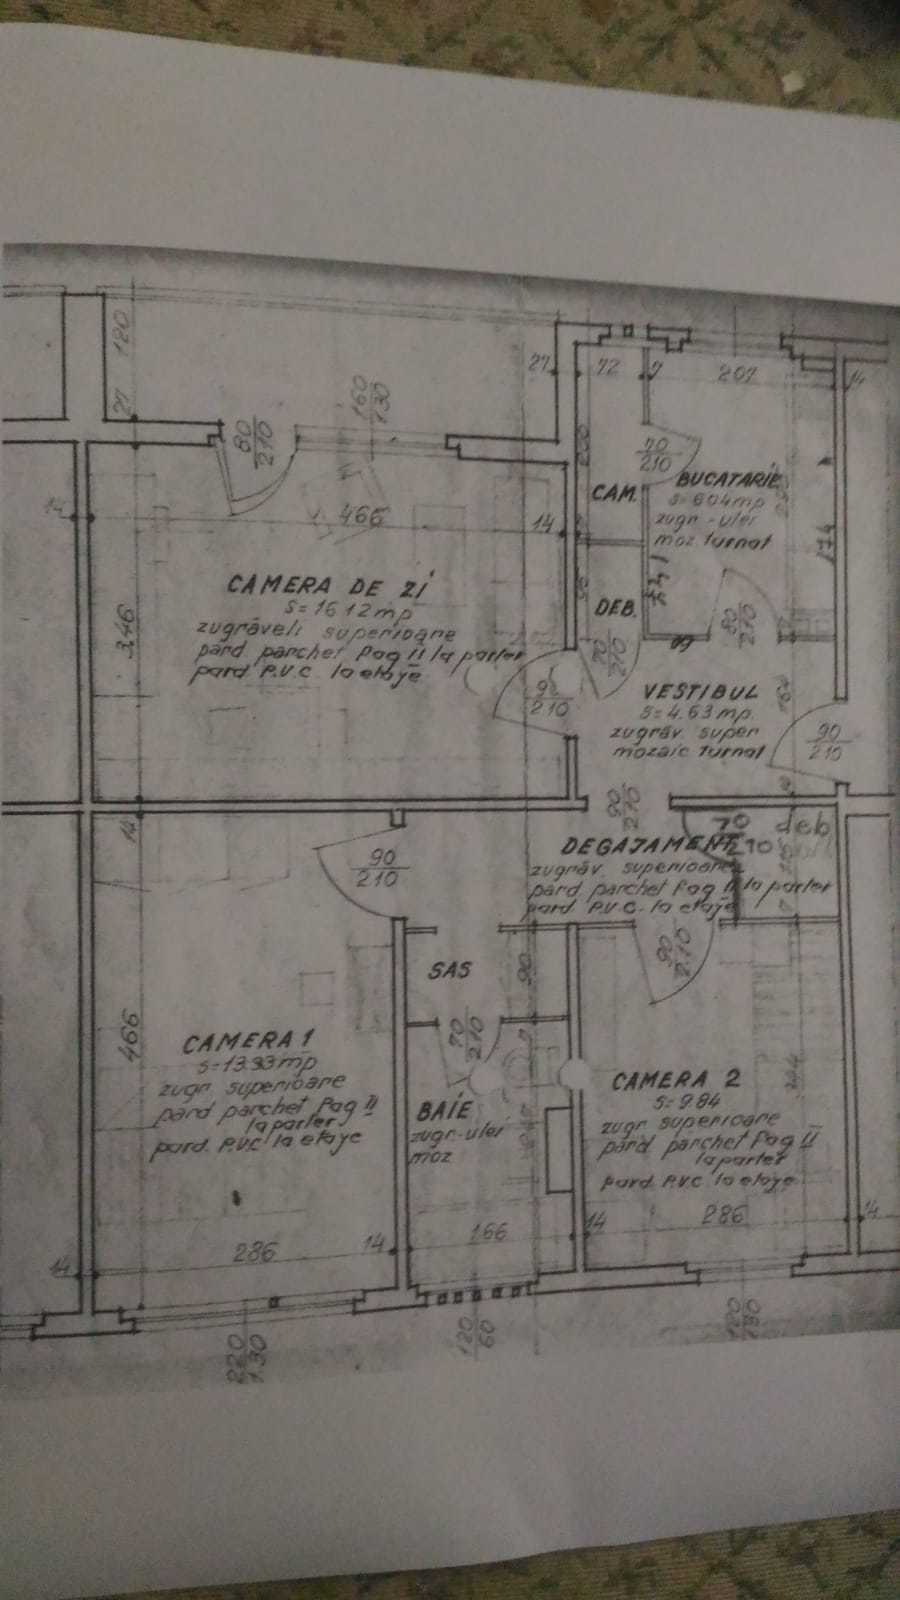 120
27
80
210
160
130
27
72
7
207
14
70
210
CAM.
BUCATARIE
S=6.04mp
zugr-ulei
moz turnat
174
14
466
14
CAMERA DE ZI
S=16.12mp
zugrăveli superioare
pard parchet Pag II la parter
pard P.V.C. la etaje
3.46
DEB.
80
210
70
210
90
210
VESTIBUL
S=4.63 mp.
zugrăv. super
mozaic turnat
90
210
90
210
14
70
210
deb
DEGAJAMENT
zugrăv. superioare
pard parchet Pag II la parter
pard P.V.C. la etaje
90
210
90
210
SAS
90
70
210
466
CAMERA 1
S=13.33mp
zugr superioare
pard parchet Pag II
la parter
pard. P.V.C la etaje
BAIE
zugr-ulei
moz
CAMERA 2
S=9.84
zugr superioare
pard parchet Pag II
la parter
pard P.V.C la etaje
14
286
14
166
14
286
14
220
130
120
60
120
130